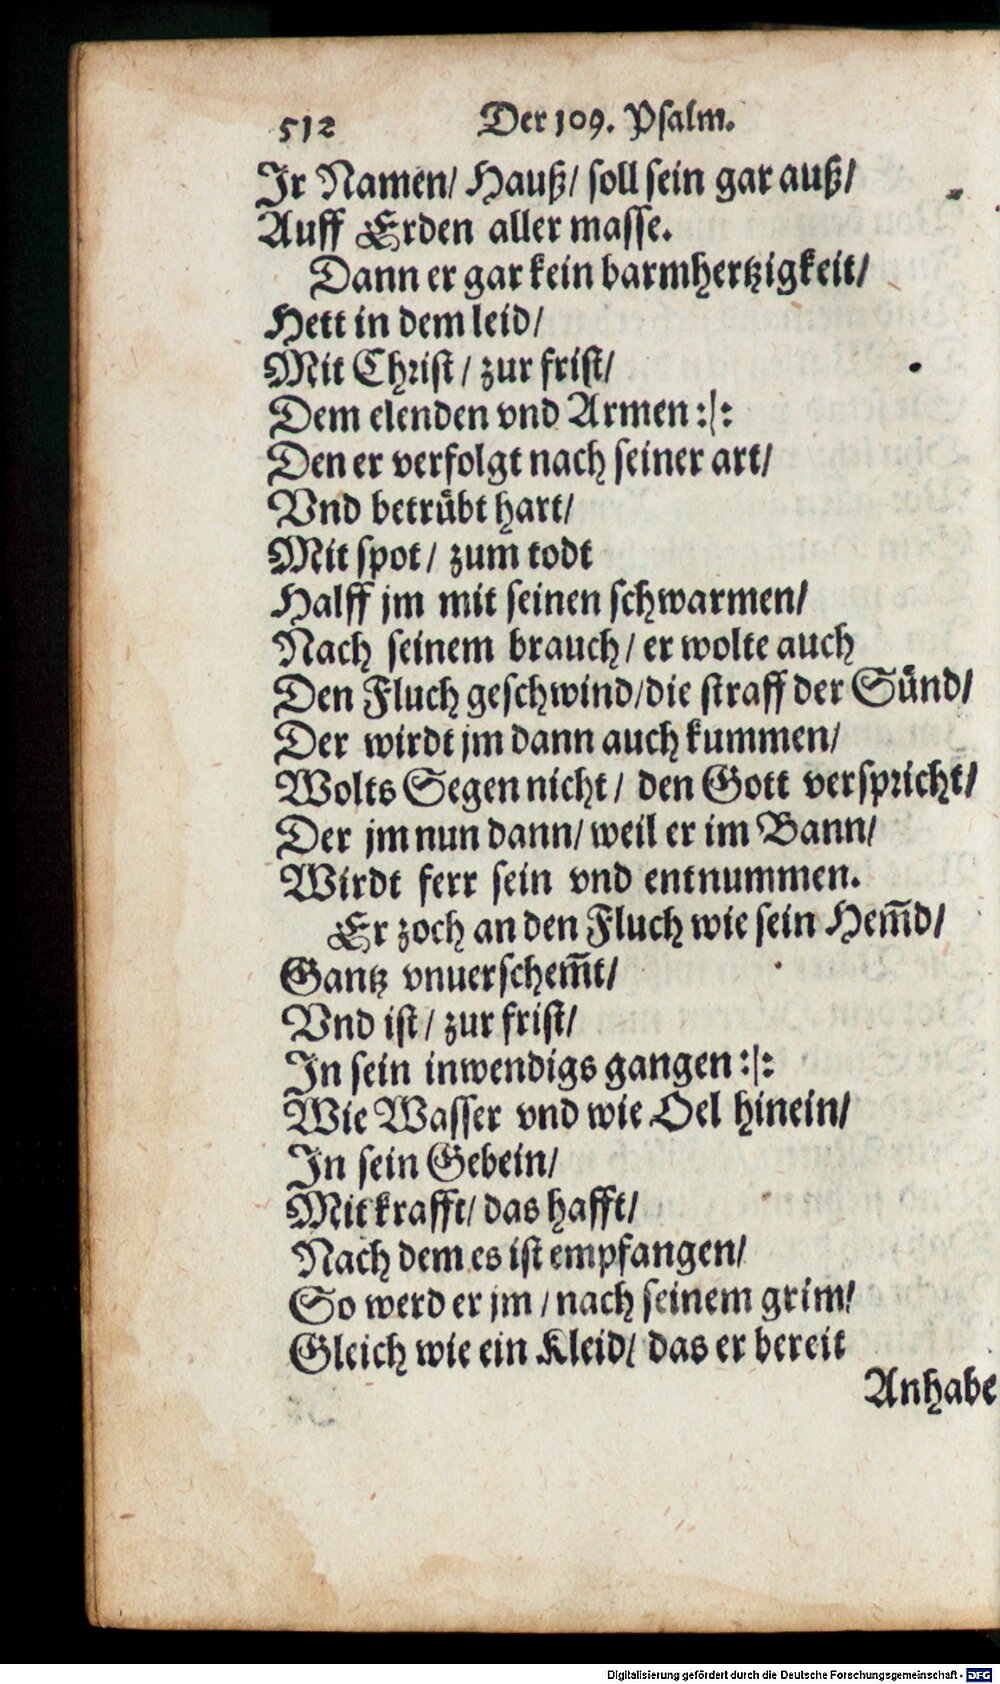 512 Der 109. Psalm.
Ir Namen/ Hauß/ soll sein gar auß/
Auff Erden aller masse.
Dann er gar kein barmhertzigkeit/
Hett in dem leid/
Mit Christ/ zur frist/
Dem elenden vnd Armen :/:
Den er verfolgt nach seiner art/
Vnd betruͤbt hart/
Mit spot/ zum todt
Halff jm mit seinen schwarmen/
Nach seinem brauch/ er wolte auch
Den Fluch geschwind/die straff der Suͤnd/
Der wirdt jm dann auch kummen/
Wolts Segen nicht/ den Gott verspricht/
Der jm nun dann/ weil er im Bann/
Wirdt ferr sein vnd entnummen.
Er zoch an den Fluch wie sein Hem̃d/
Gantz vnuerschem̃t/
Vnd ist/ zur frist/
In sein inwendigs gangen :/:
Wie Wasser vnd wie Oel hinein/
In sein Gebein/
Mit krafft/ das hafft/
Nach dem es ist empfangen/
So werd er jm/ nach seinem grim/
Gleich wie ein Kleid/ das er bereit
Anhabe
Digitalisierung gefördert durch die Deutsche Forschungsgemeinschaft - DFG